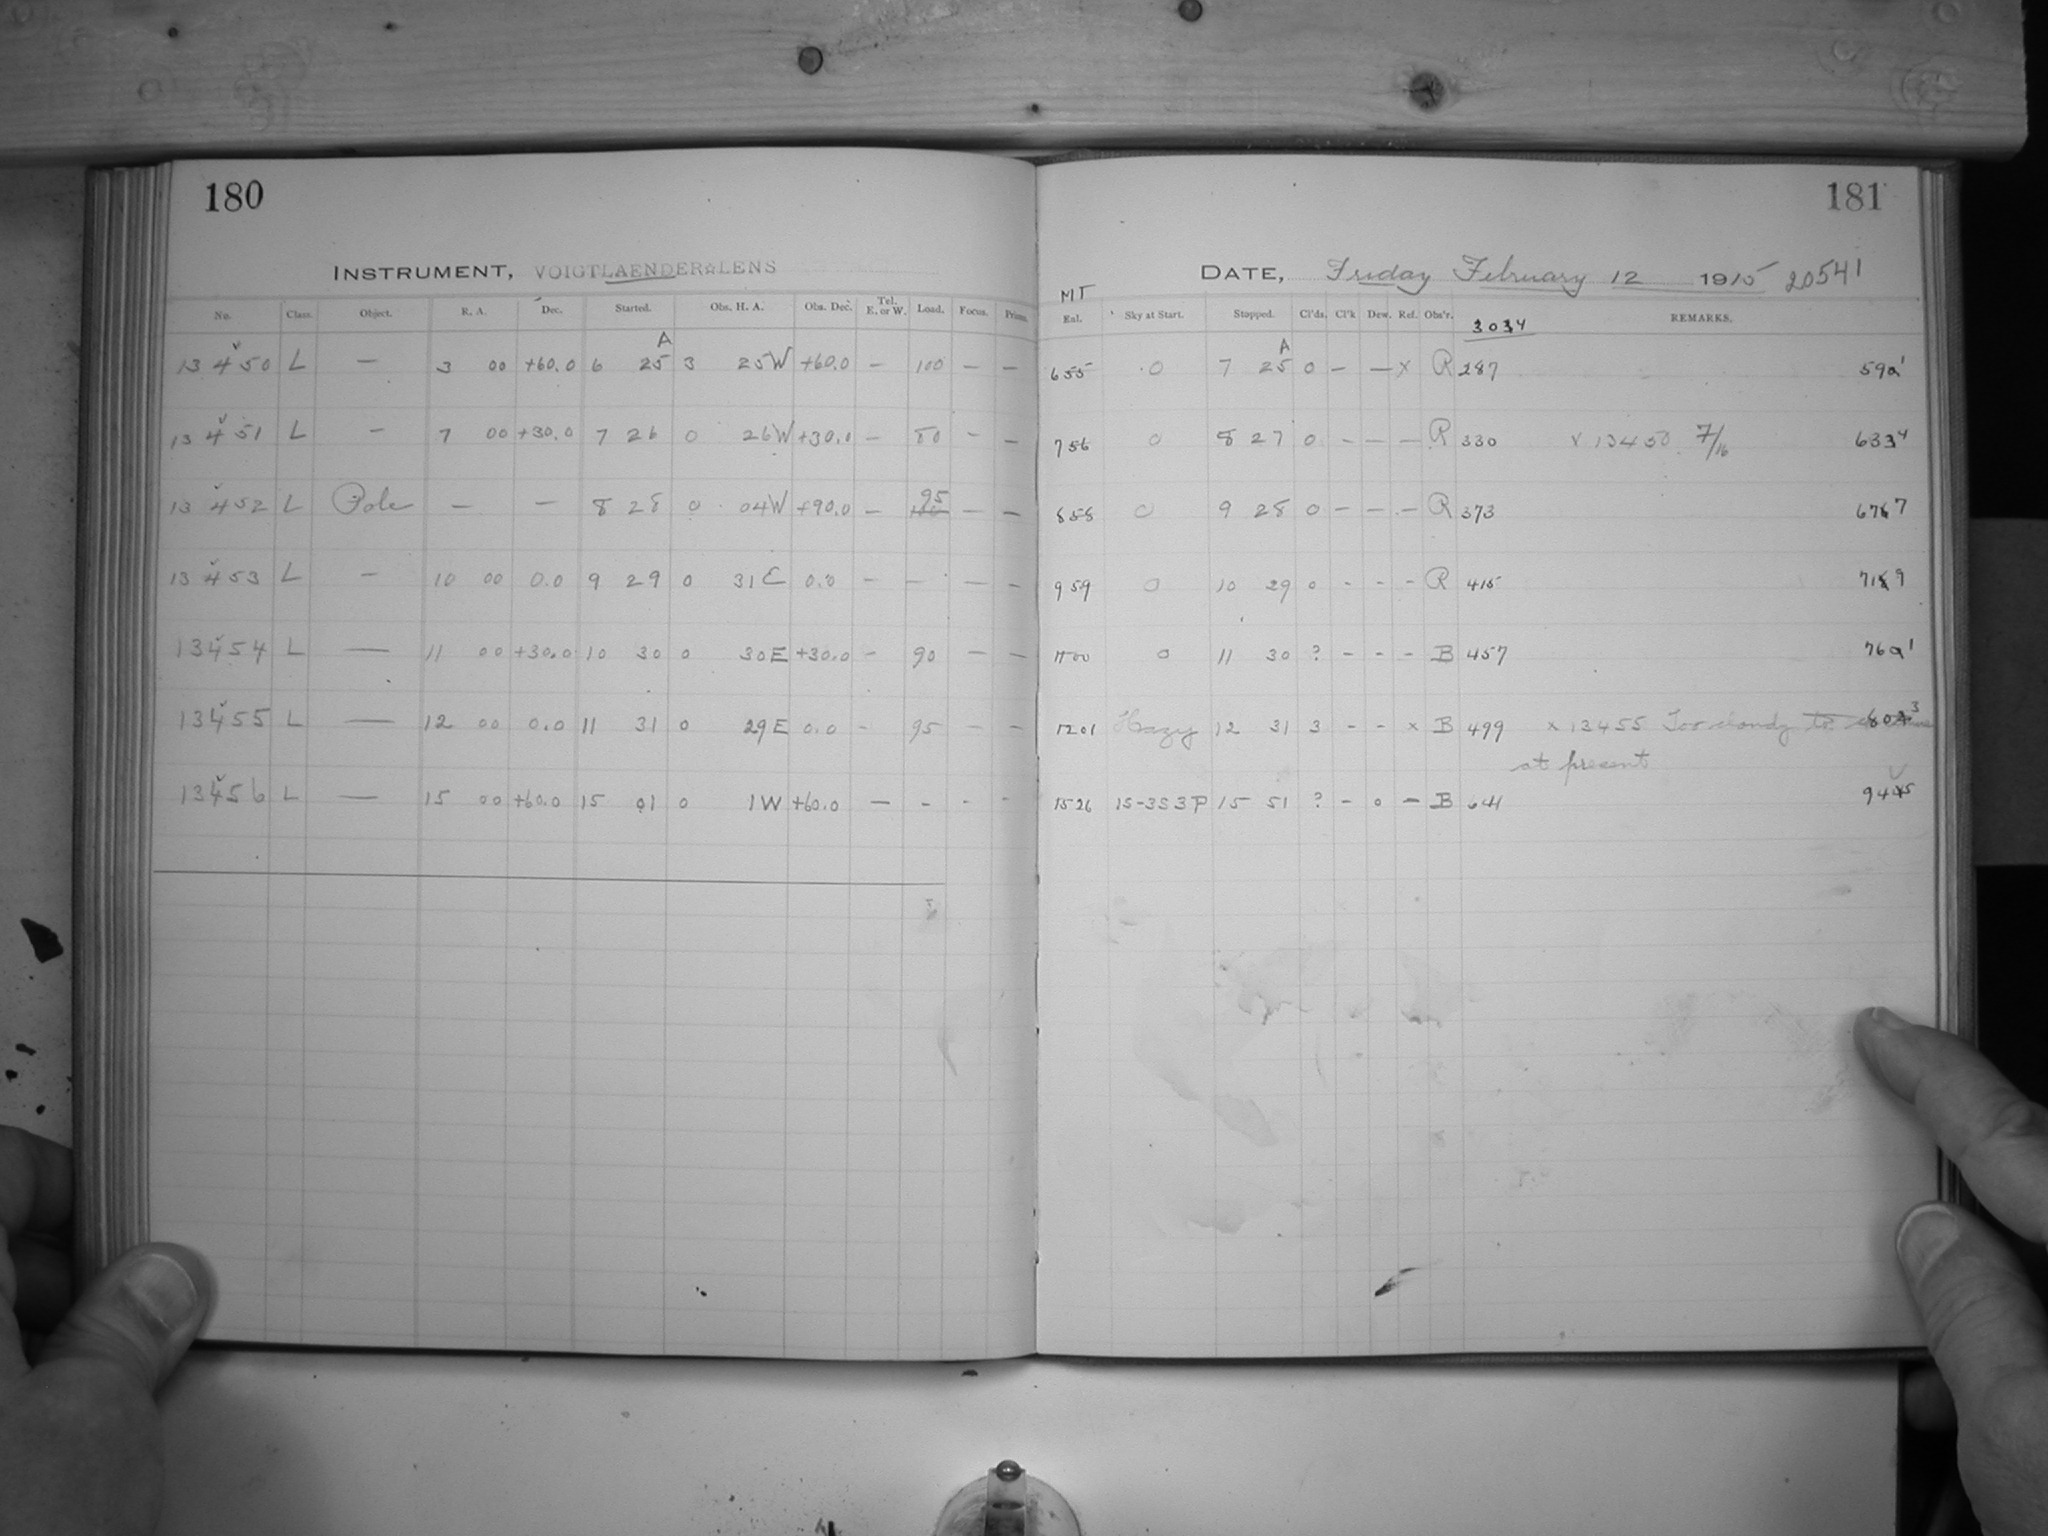 180
181
INSTRUMENT, VOIGTLAENDER☆LENS
DATE, Friday February 12 1915 20541
No. Class. Object. R. A. Dec. Started. Obs. H. A. Obs. Dec. Tel. E. or W. Load. Focus. Prisms.
MT
Eal. Sky at Start. Stopped. Cl'ds. Cl'k Dew. Ref. Obs'r. 3034 REMARKS.
A A
13450 L — 3 00 +60.0 6 25 3 25W +60.0 — 100 — — 655 0 7 25 0 — — x R 287 59a1
13451 L — 7 00 +30.0 7 26 0 26W +30.0 — 80 — — 756 0 8 27 0 - — — R 330 x 13450 7/16 6334
95
13452 L Pole — — 8 28 0 04W +90.0 — — — 858 0 9 28 0 - - - R 373
13453 L — 10 00 0.0 9 29 0 31E 0.0 - — — - 959 0 10 29 0 - - - R 415
13454 L — 11 00 +30.0 10 30 0 30E +30.0 - 90 — — 1100 0 11 30 ? - - - B 457 76a1
13455 L — 12 00 0.0 11 31 0 29E 0.0 - 95 — — 1201 Hazy 12 31 3 - - x B 499 x 13455 Too cloudy to
at present
13456 L — 15 00 +60.0 15 01 0 1W +60.0 — - - - 1526 15-3S3P 15 51 ? - 0 — B 641